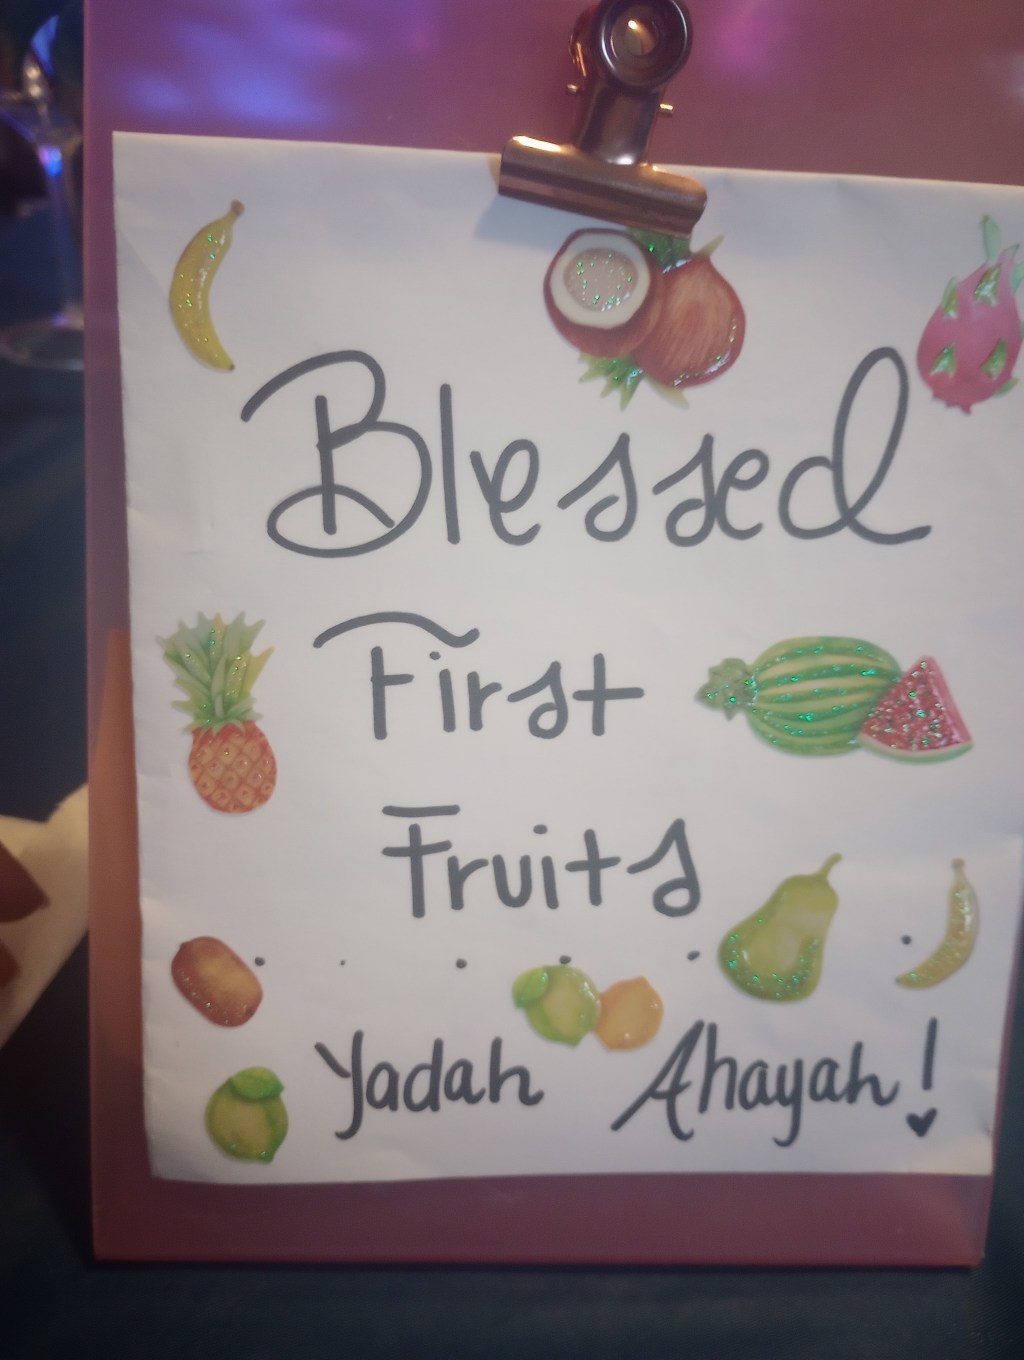 Blessed
First
Fruits
Yadah Ahayah!